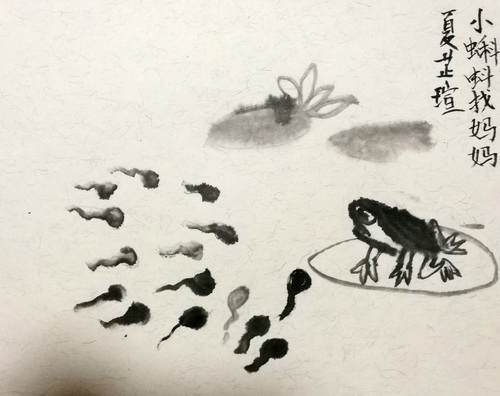 小蝌蚪找妈妈
夏芷瑄